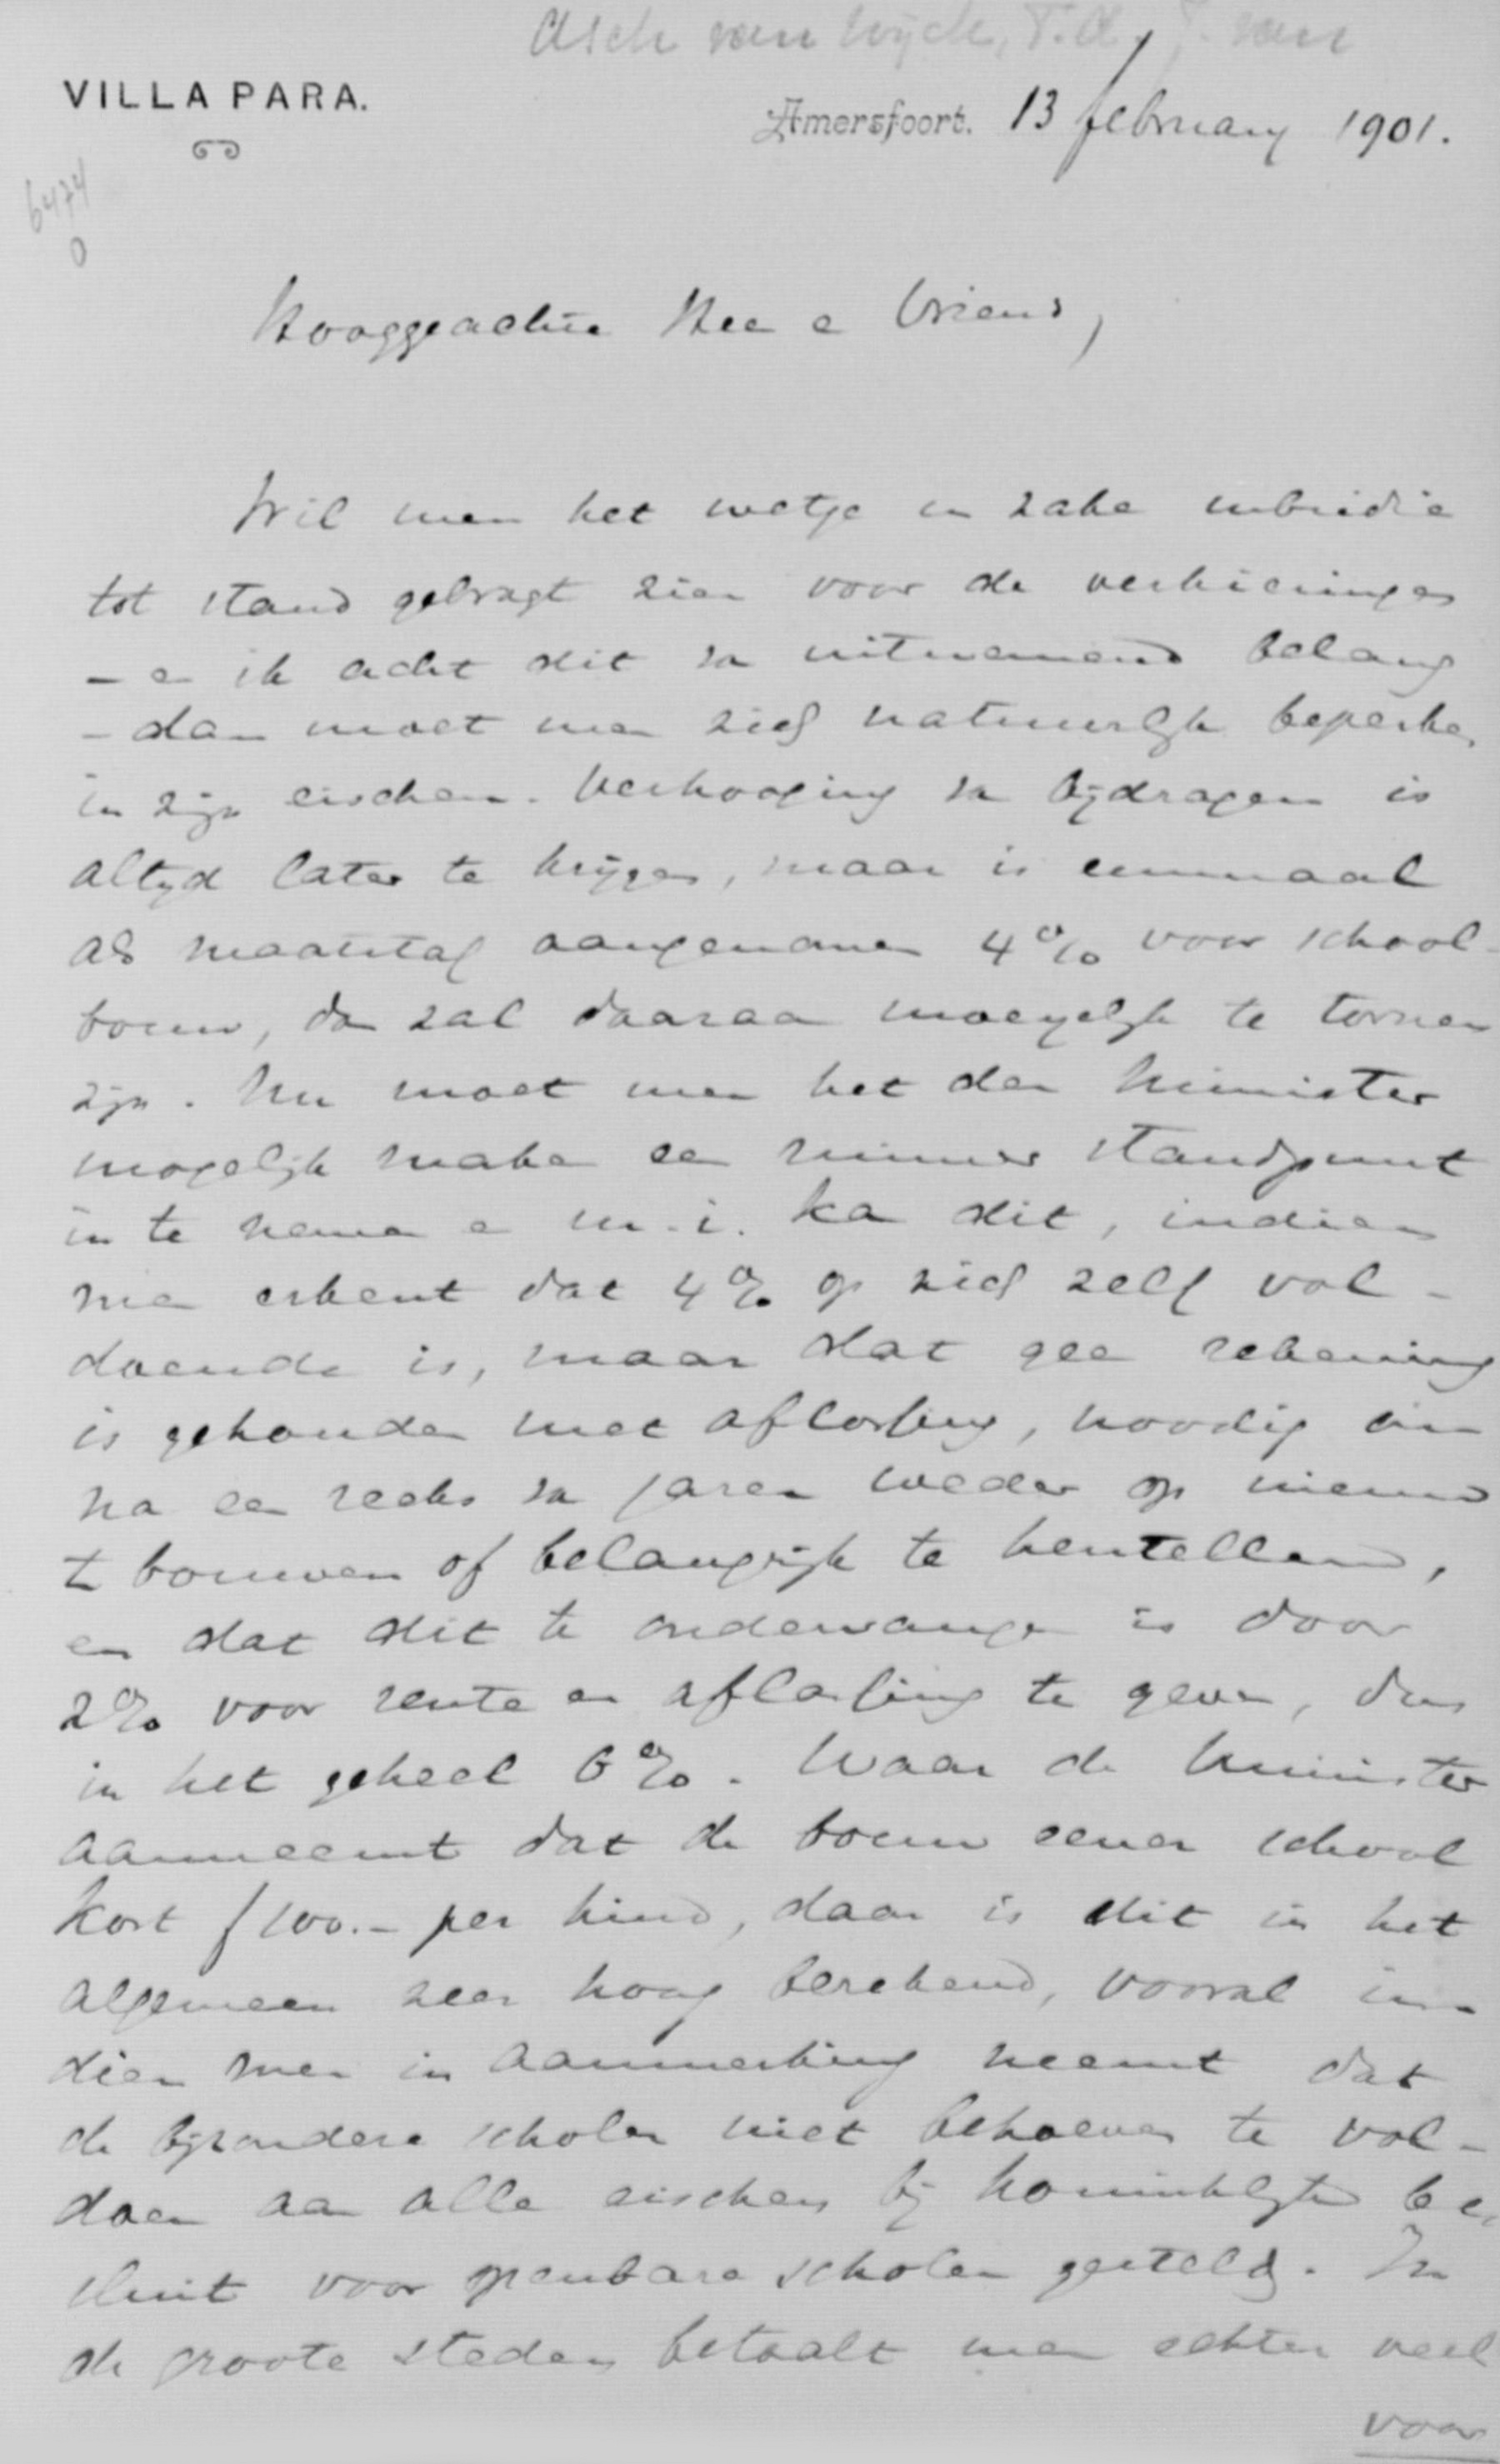 Asch van Wijck, T.A.J. van
VILLA PARA.
Amersfoort. 13 february 1901.
6474
0
Hooggeachte Heer en Vriend,
Wil men het wetje in zake subsidie
tot stand gebragt zien voor de verkiezingen
– en ik acht dit van uitnemend belang
– dan moet men zich natuurlijk beperken
in zijn eischen. Verhooging van bijdragen is
altijd later te krijgen, maar is eenmaal
als maatstaf aangenomen 4% voor school-
bouw, dan zal daaraan moeyelijk te tornen
zijn. Nu moet men het den Minister
mogelijk maken een ruimer standpunt
in te nemen en m.i. kan dit, indien
men erkent dat 4% op zich zelf vol-
doende is, maar dat geen rekening
is gehouden met aflossing, noodig om
na een reeks van jaren weder op nieuw
te bouwen of belangrijk te herstellen,
en dat dit te ondervangen is door
2% voor rente en aflossing te geven, dus
in het geheel 6%. Waar de Minister
aanneemt dat de bouw eener school
kost f 100.- per kind, daar is dit in het
algemeen zeer hoog berekend, vooral in-
dien men in aanmerking neemt dat
de bijzondere scholen niet behoeven te vol-
doen aan alle eischen bij koninklijk be-
sluit voor openbare scholen gesteld. In
de groote steden betaalt men echter veel
voor